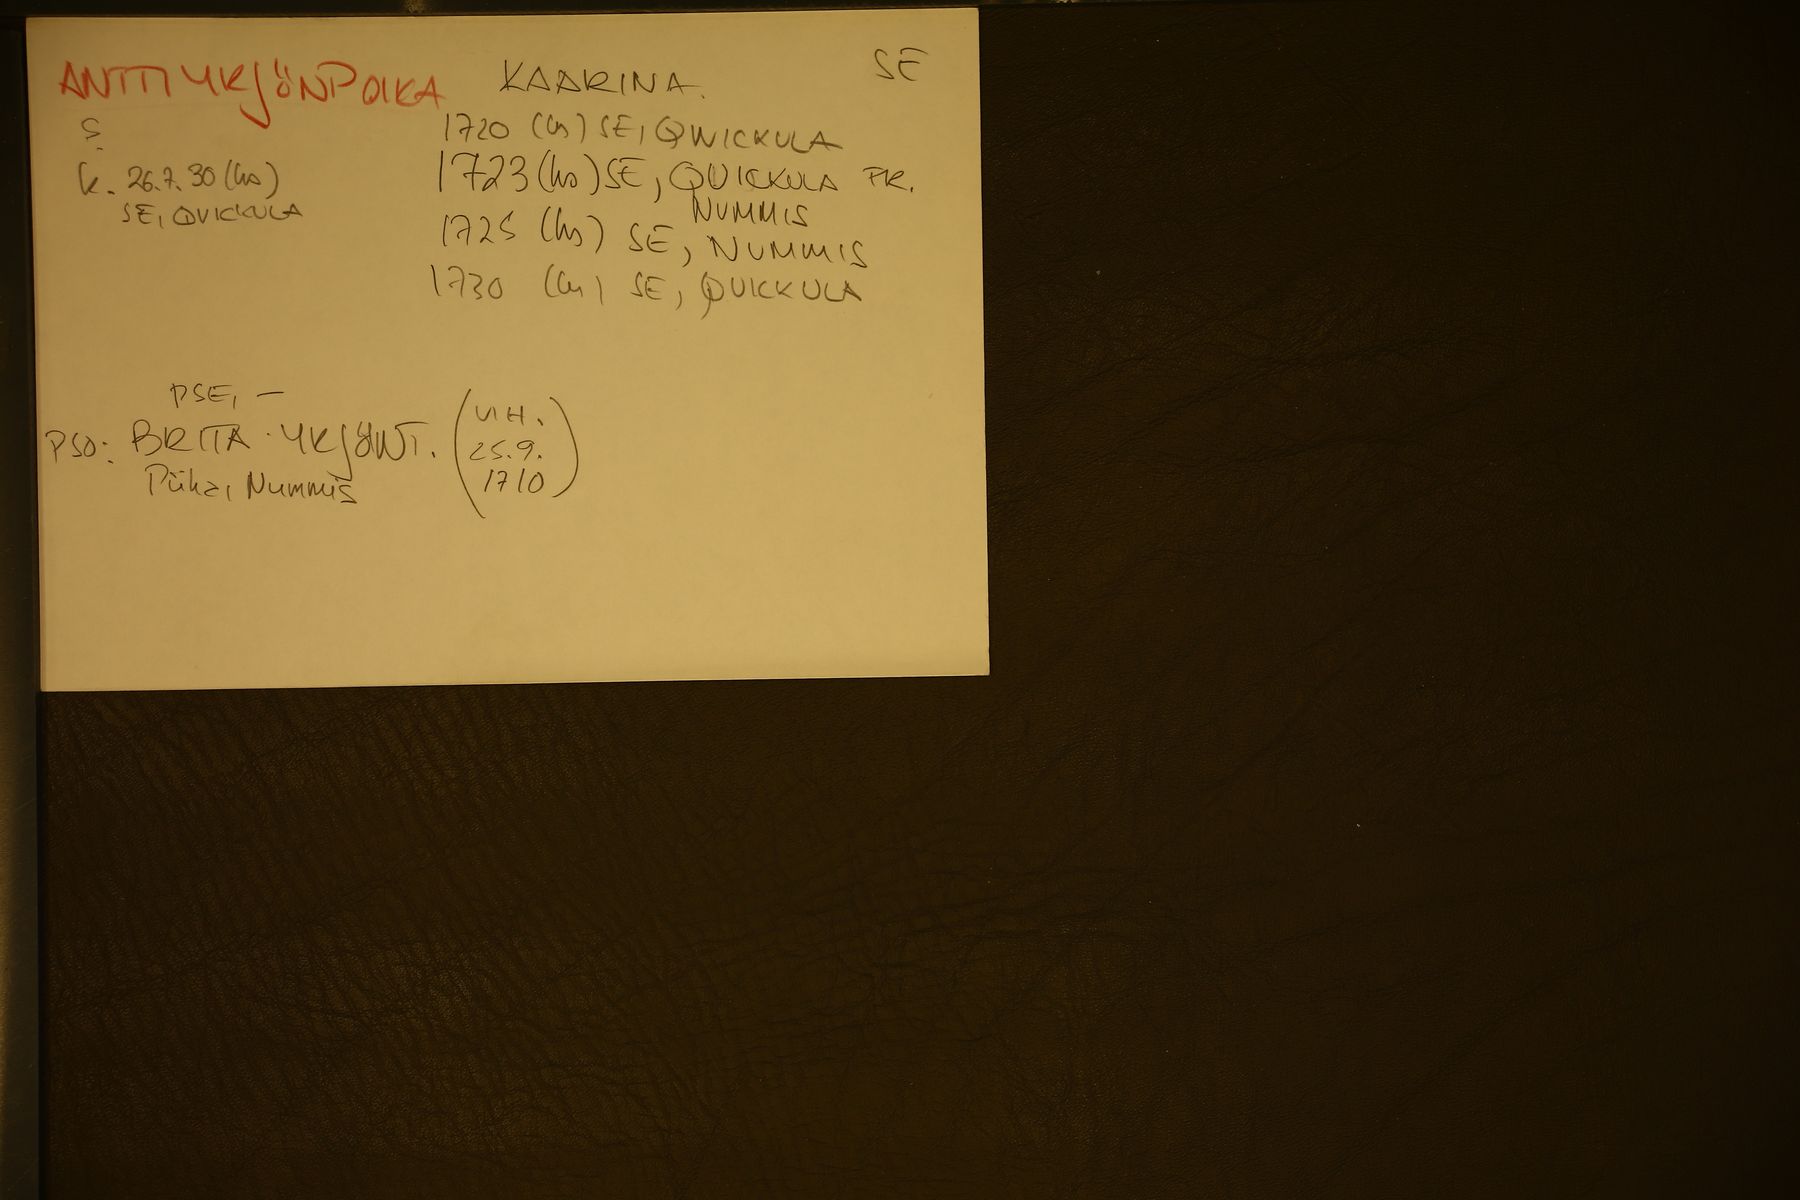 ANTTI YRJÖNPOIKA KAARINA. SE
S.
1720 (hs) SE, QWICKULA
k. 26.7.30 (hs)
SE, QVICKULA
1723 (hs) SE, QUICKULA PR.
NUMMIS
1725 (hs) SE, NUMMIS
1730 (hs) SE, QUICKULA
PSE, —
PSO: BRITA YRJÖNT. (VIH.
25.9.
1710)
Piika, Nummis